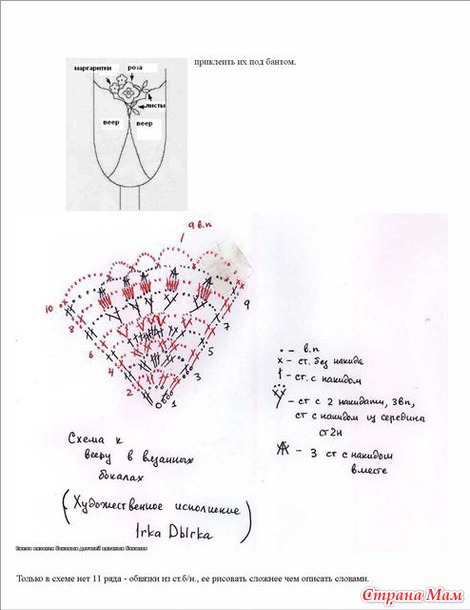 приклеить их под бантом.
маргаритки роза
листы
веер веер
9 в.п
1
10 9
8 7
6 5
4 3
2 1
• - в.п
х - ст. без накида
ст. с накидом
ст с 2 накидами, 3вп,
ст с накидом из середины
ст2н
3 ст с накидом
вместе
Схема к
вееру в вязанных
бокалах
(Художественное исполнение
Irka DbIrka)
Только в схеме нет 11 ряда - обвязки из ст.б/н., ее рисовать сложнее чем описать словами.
Страна Мам